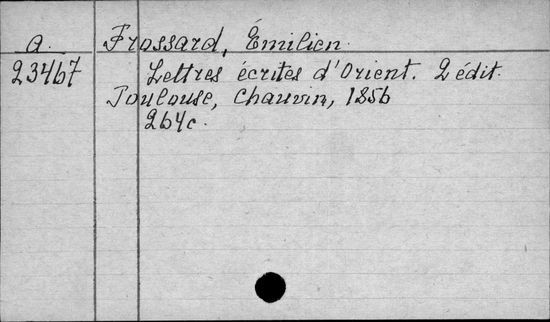 A. Frossard, Émilien.
23467 Lettres écrites d'Orient. 2 édit.
Toulouse, Chauvin, 1856
264c.